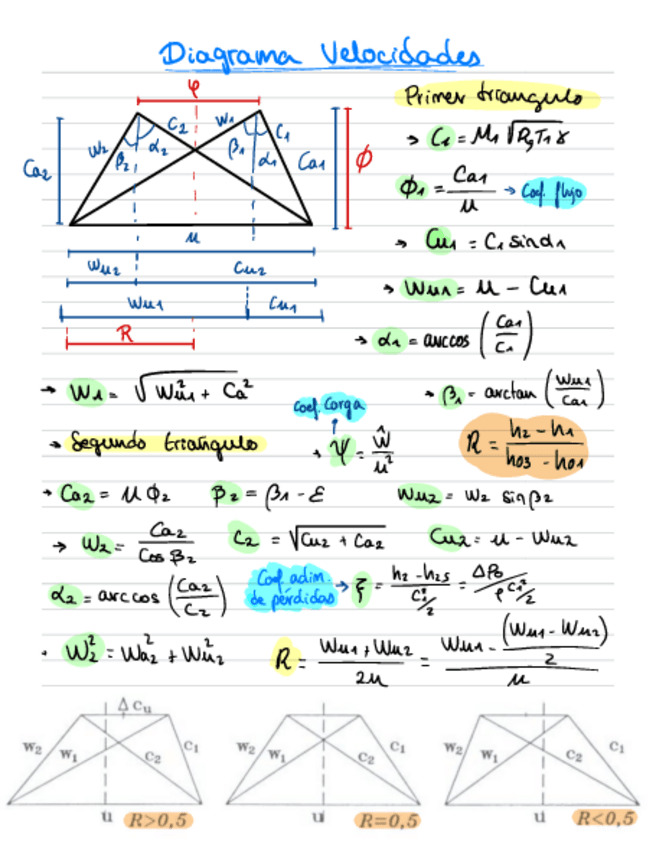 Diagrama Velocidades
φ
Primer triangulo
W₂ C₂ W₁ C₁
β₂ α₂ β₁ α₁
Ca₂ Ca₁ Φ
→ C₁ = M₁ √(Rg T₁ γ)
Φ₁ = Ca₁ / u → Coef. flujo
u
Wu₂ Cu₂
Wu₁ Cu₁
R
→ Cu₁ = C₁ sin α₁
→ Wu₁ = u - Cu₁
→ α₁ = arccos (Ca₁ / C₁)
→ W₁ = √(Wu₁² + Ca²)
→ β₁ = arctan (Wu₁ / Ca₁)
Coef. Carga
→ Segundo triangulo
→ Ψ = Ŵ / u²
R = (h₂ - h₁) / (h₀₃ - h₀₁)
→ Ca₂ = u Φ₂ β₂ = β₁ - ε Wu₂ = W₂ sin β₂
→ W₂ = Ca₂ / Cos β₂ C₂ = √(Cu₂ + Ca₂) Cu₂ = u - Wu₂
α₂ = arccos (Ca₂ / C₂)
Coef. adim. de pérdidas → ξ = (h₂ - h₂s) / (C₁²/2) = ΔP₀ / (ρ C₁²/2)
· W₂² = Wa₂² + Wu₂² R = (Wu₁ + Wu₂) / 2u = (Wu₁ - (Wu₁ - Wu₂) / 2) / u
Δ Cu
W₂ W₁ C₂ C₁
u R>0,5
W₂ W₁ C₂ C₁
u R=0,5
W₂ W₁ C₂ C₁
u R<0,5